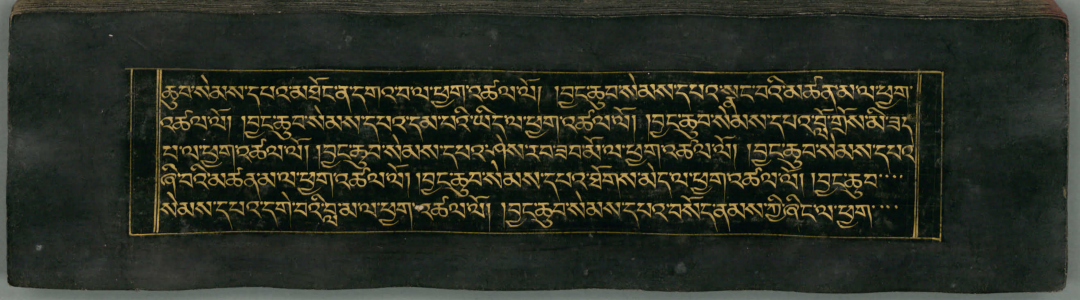 ཆུབ་སེམས་དཔའ་མཐོང་ན་དགའ་བ་ལ་ཕྱག་འཚལ་ལོ། །བྱང་ཆུབ་སེམས་དཔའ་སྣང་བའི་མཚན་མ་ལ་ཕྱག་
འཚལ་ལོ། །བྱང་ཆུབ་སེམས་དཔའ་དམ་པའི་ཡིད་ལ་ཕྱག་འཚལ་ལོ། །བྱང་ཆུབ་སེམས་དཔའ་བློ་གྲོས་མི་ཟད་
པ་ལ་ཕྱག་འཚལ་ལོ། །བྱང་ཆུབ་སེམས་དཔའ་ཤེས་རབ་ཟབ་མོ་ལ་ཕྱག་འཚལ་ལོ། །བྱང་ཆུབ་སེམས་དཔའ་
ཞི་བའི་མཚན་མ་ལ་ཕྱག་འཚལ་ལོ། །བྱང་ཆུབ་སེམས་དཔའ་ཐོགས་མེད་ལ་ཕྱག་འཚལ་ལོ། །བྱང་ཆུབ་
སེམས་དཔའ་དགེ་བའི་བླ་མ་ལ་ཕྱག་འཚལ་ལོ། །བྱང་ཆུབ་སེམས་དཔའ་བསོད་ནམས་ཀྱི་ཞིང་ལ་ཕྱག་